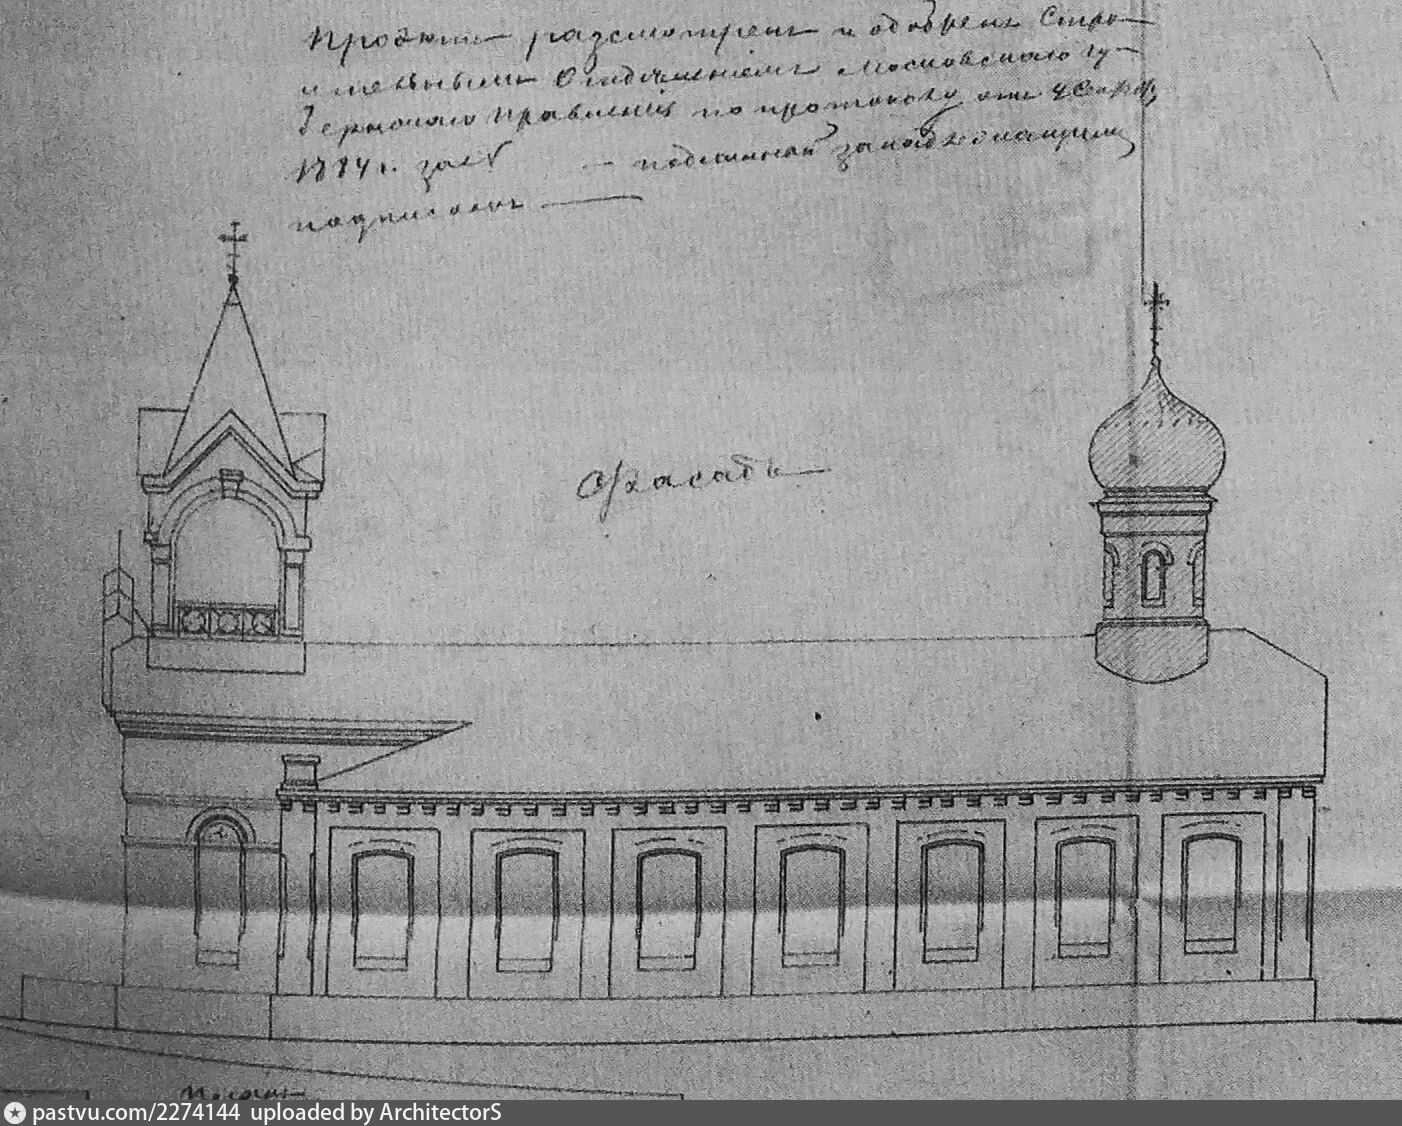 Проэктъ разсмотренъ и одобренъ Строи-
тельнымъ Отделеніемъ Московскаго гу-
бернскаго правленія по протоколу отъ
1884 г. за № — подлинной за надлежащимъ
подписомъ —
Фасадъ
pastvu.com/2274144 uploaded by ArchitectorS